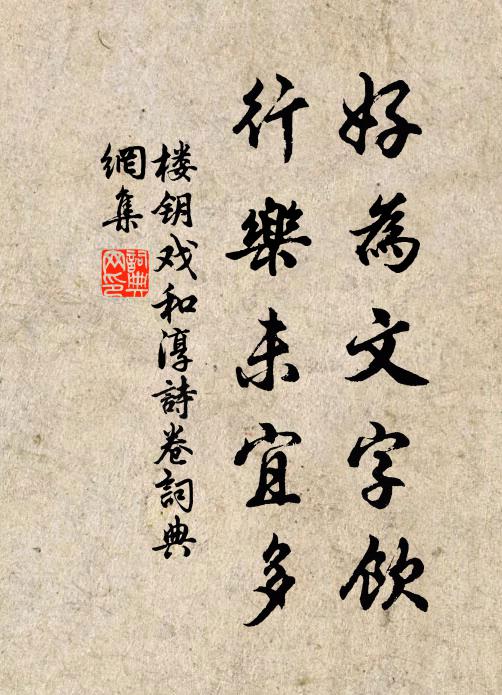 好為文字飲
行樂未宜多
楼钥戏和淳詩卷詞典
網集
詞典
网印